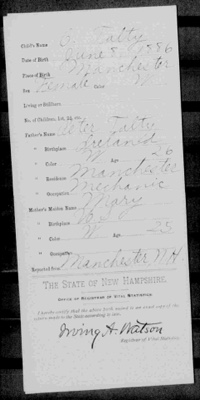 Child's Name Talty
Date of Birth June 8, 1886
Place of Birth Manchester
Sex Female
Living or Stillborn
No. of Children, 1st, 2d, etc.
Father's Name Peter Talty
" Birthplace Ireland
" Color W Age 26
" Residence Manchester
" Occupation Mechanic
Mother's Maiden Name Mary
" Birthplace
" Color W Age 25
" Occupation
Reported from Manchester N.H.
THE STATE OF NEW HAMPSHIRE.
OFFICE OF REGISTRAR OF VITAL STATISTICS
I hereby certify that the above birth record is an exact copy of the
return made to the State according to law.
Irving A. Watson
Registrar of Vital Statistics